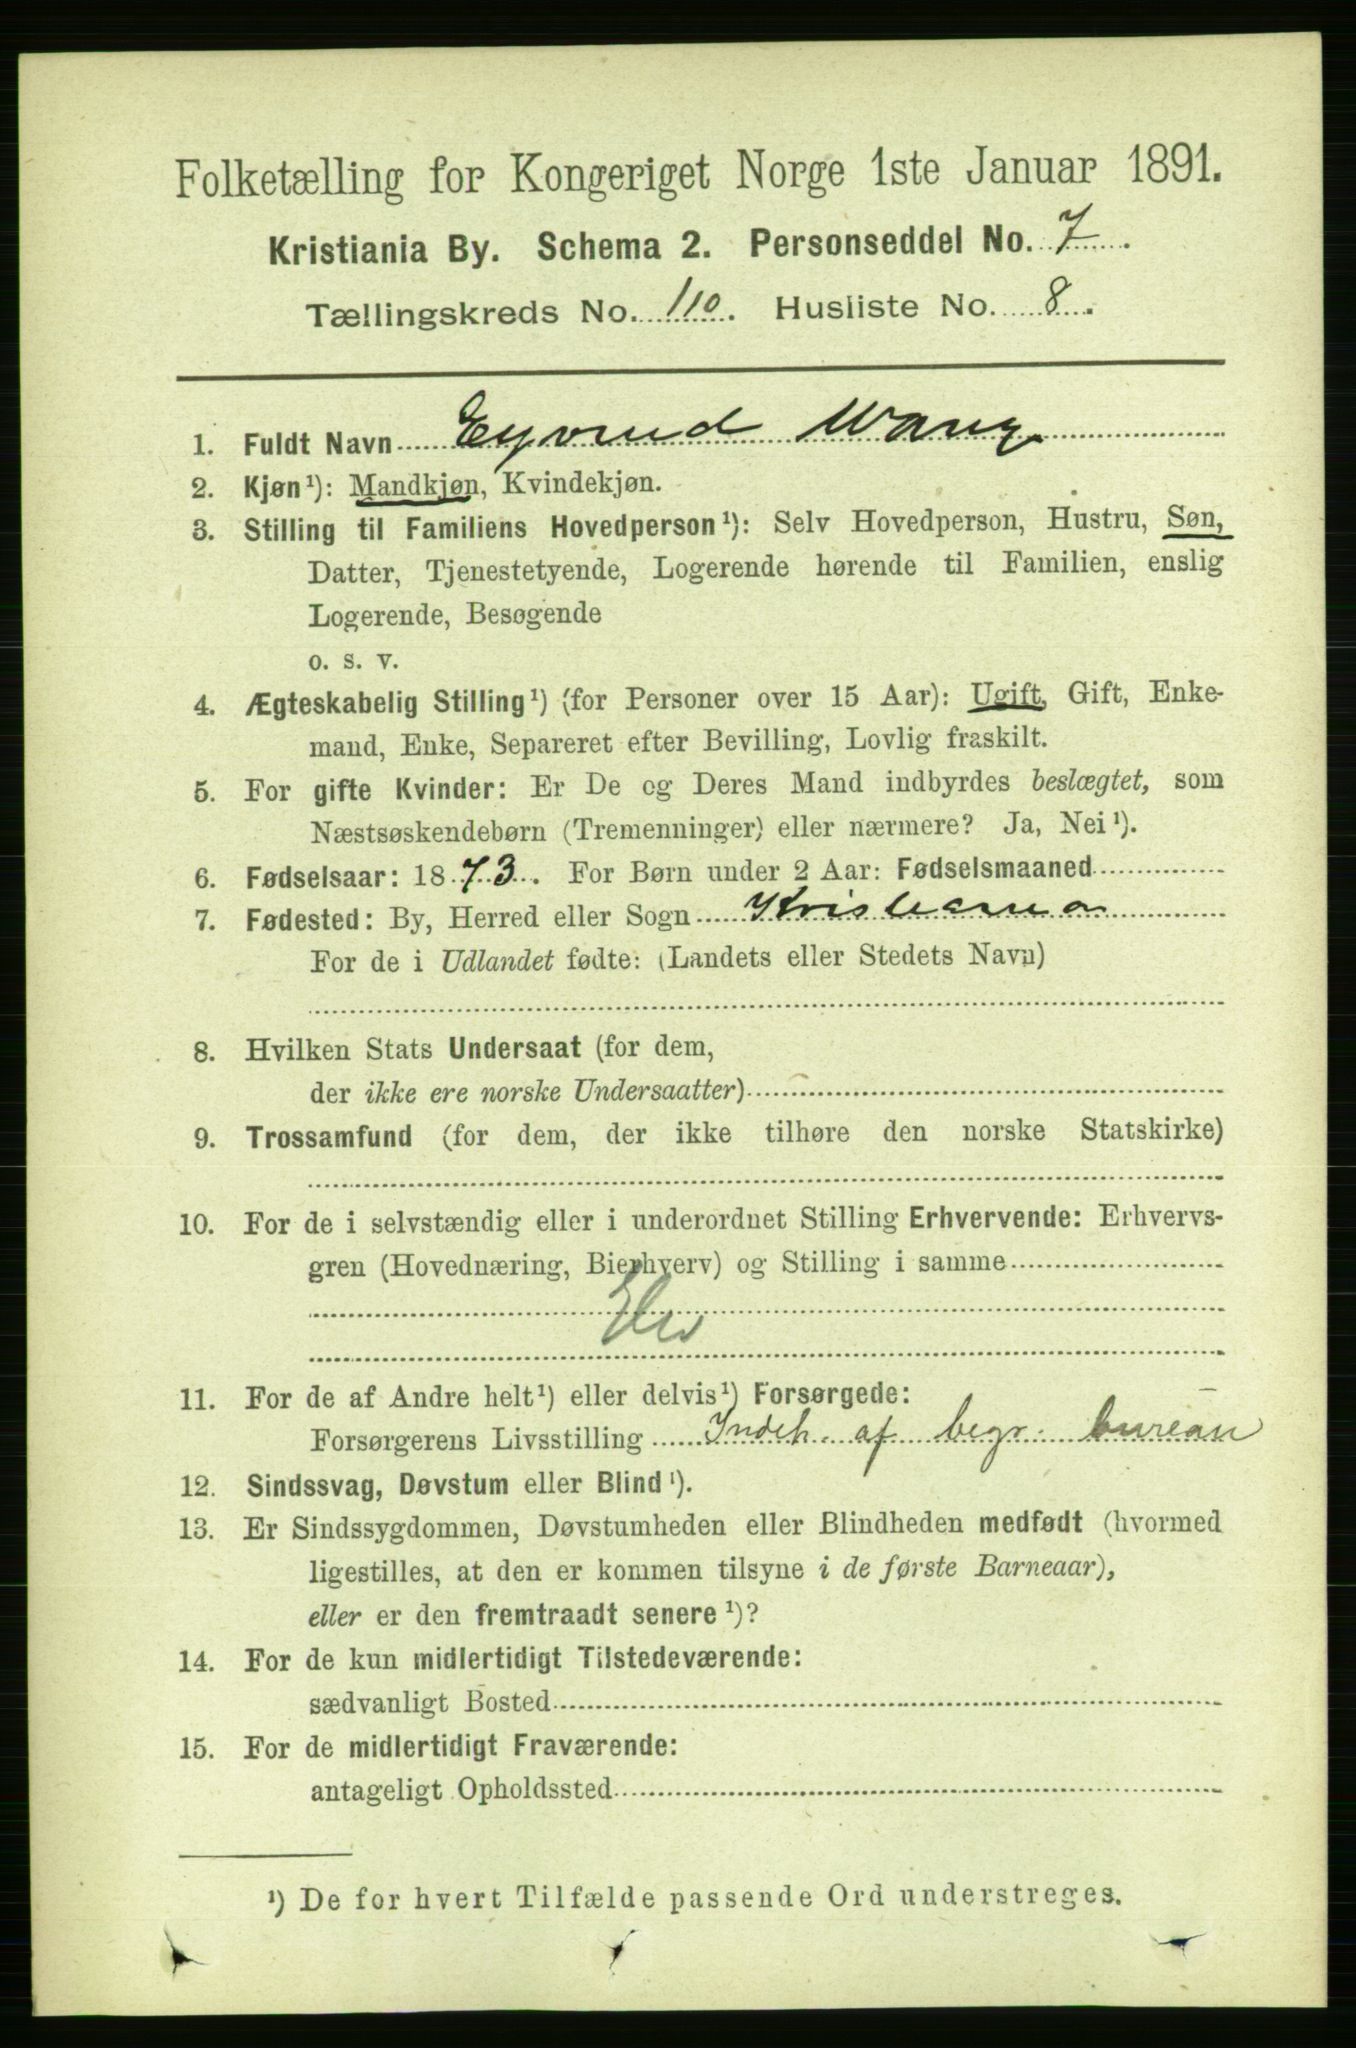 Folketælling for Kongeriget Norge 1ste Januar 1891.
Kristiania By. Schema 2. Personseddel No. 7.
Tællingskreds No. 110. Husliste No. 8.
1. Fuldt Navn Eyvind Wang
2. Kjøn¹): Mandkjøn, Kvindekjøn.
3. Stilling til Familiens Hovedperson¹): Selv Hovedperson, Hustru, Søn,
Datter, Tjenestetyende, Logerende hørende til Familien, enslig
Logerende, Besøgende
o. s. v.
4. Ægteskabelig Stilling¹) (for Personer over 15 Aar): Ugift, Gift, Enke-
mand, Enke, Separeret efter Bevilling, Lovlig fraskilt.
5. For gifte Kvinder: Er De og Deres Mand indbyrdes beslægtet, som
Næstsøskendebørn (Tremenninger) eller nærmere? Ja, Nei¹).
6. Fødselsaar: 1873. For Børn under 2 Aar: Fødselsmaaned
7. Fødested: By, Herred eller Sogn Kristiania
For de i Udlandet fødte: (Landets eller Stedets Navn)
8. Hvilken Stats Undersaat (for dem,
der ikke ere norske Undersaatter)
9. Trossamfund (for dem, der ikke tilhøre den norske Statskirke)
10. For de i selvstændig eller i underordnet Stilling Erhvervende: Erhvervs-
gren (Hovednæring, Bierhverv) og Stilling i samme
Elev
11. For de af Andre helt¹) eller delvis¹) Forsørgede:
Forsørgerens Livsstilling Indeh. af begr. bureau
12. Sindssvag, Døvstum eller Blind¹).
13. Er Sindssygdommen, Døvstumheden eller Blindheden medfødt (hvormed
ligestilles, at den er kommen tilsyne i de første Barneaar),
eller er den fremtraadt senere¹)?
14. For de kun midlertidigt Tilstedeværende:
sædvanligt Bosted
15. For de midlertidigt Fraværende:
antageligt Opholdssted
¹) De for hvert Tilfælde passende Ord understreges.